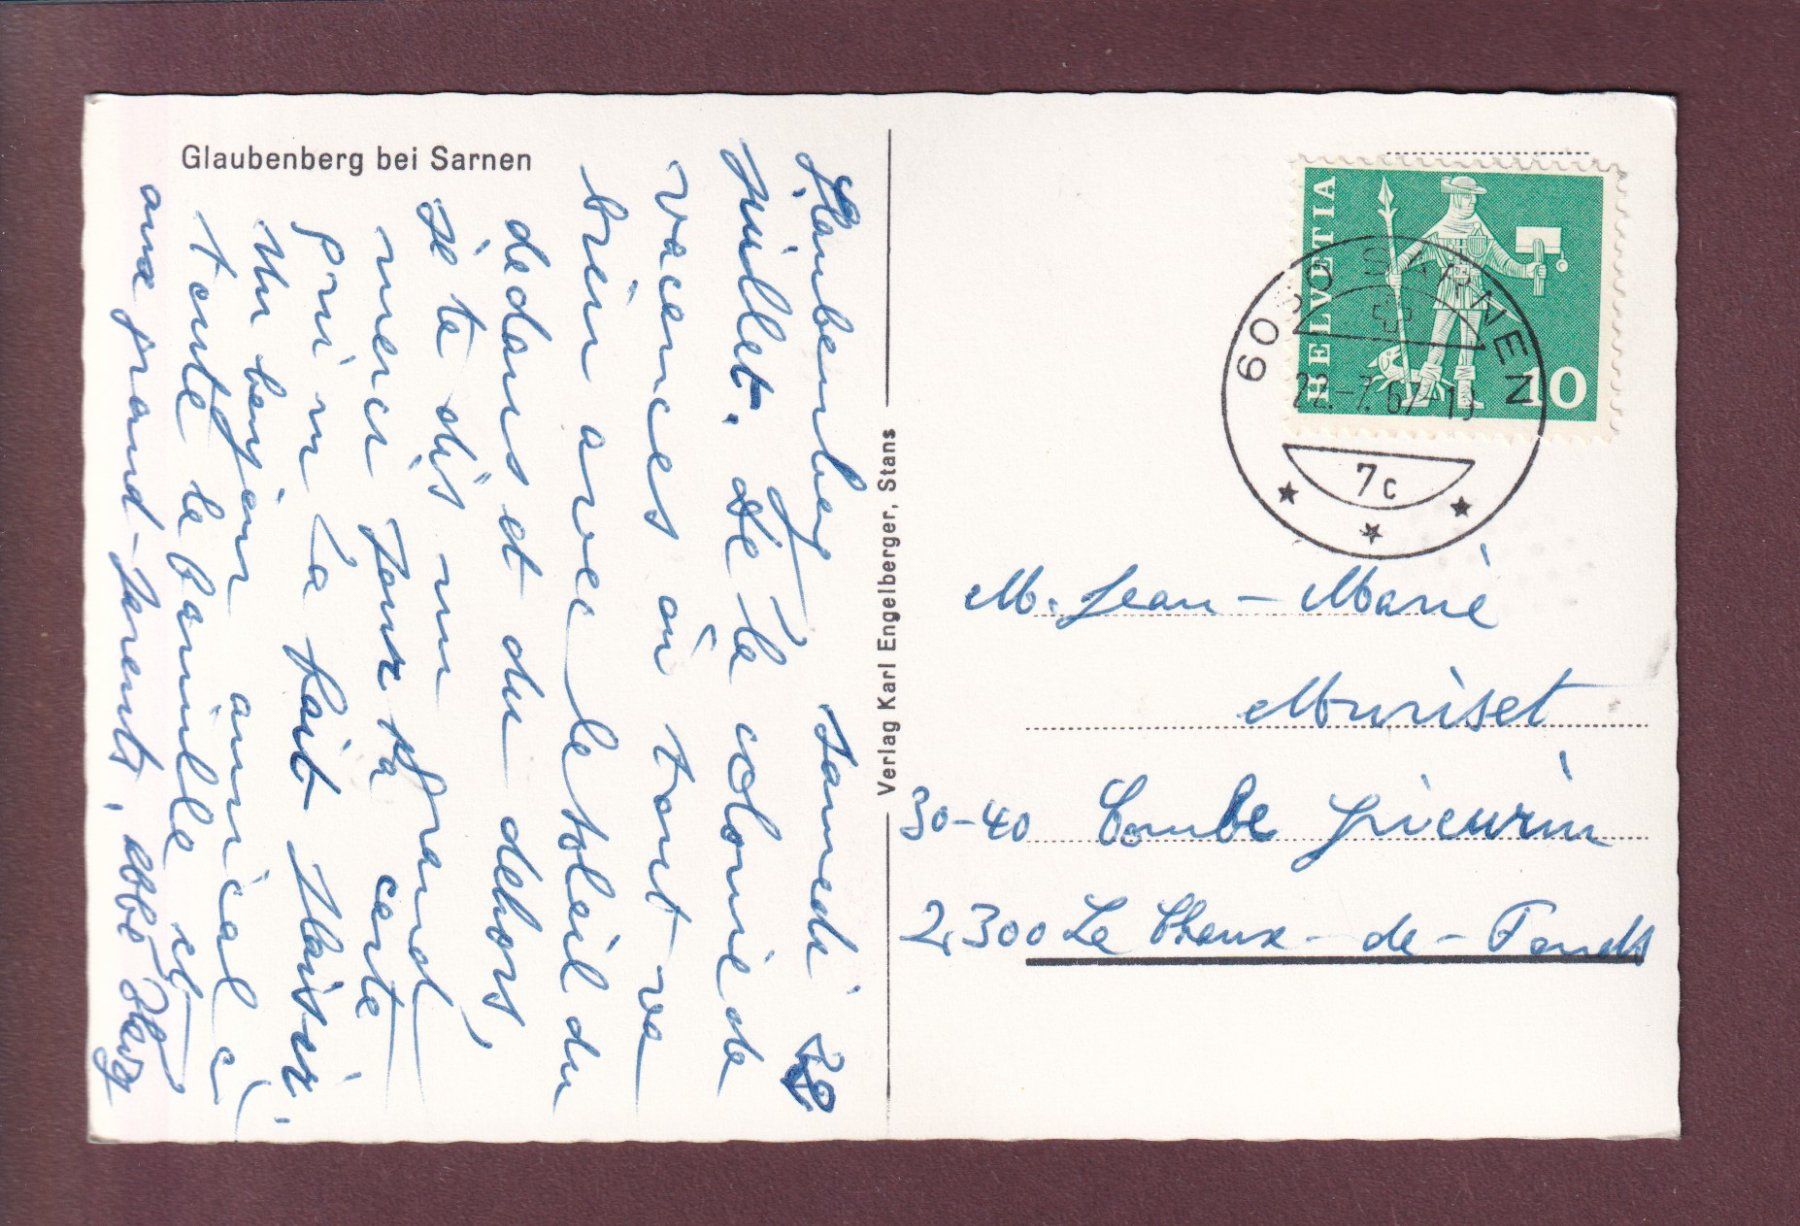 Glaubenberg bei Sarnen
Glaubenberg, Samedi 22
juillet. De la colonie de
vacances où tout va
bien avec le soleil du
dedans et du dehors,
je te dis un grand
merci pour ta carte
qui m'a fait plaisir.
Un bonjour amical à
toute la famille et
aux grand-parents. abbé
Verlag Karl Engelberger, Stans
HELVETIA
10
6060 SARNEN
22.-7.67-
7c
M. Jean-Marie
Muriset
30-40 Combe Grieurin
2300 La Chaux-de-Fonds